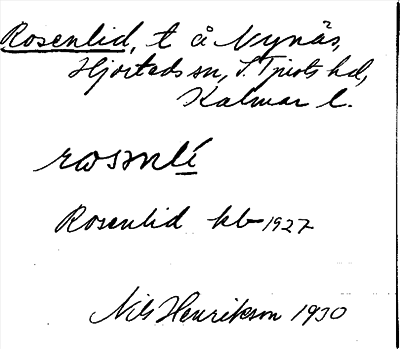 Rosenlid, t å Nynäs,
Hjorteds sn, S. Tjusts hd,
Kalmar l.
rosənlí
Rosenlid kb 1927
Nils Henrikson 1930